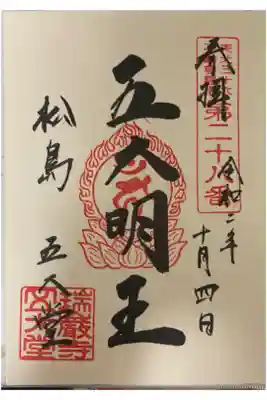 奉拝
第二十八番
令和二年
十月四日
五大明王
松島 五大堂
瑞巌寺
五大堂